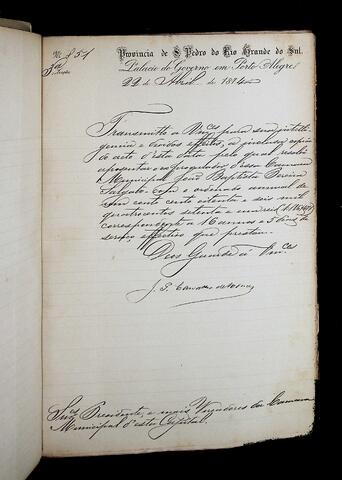 Nº 851
Provincia de S. Pedro do Rio Grande do Sul.
3a
Palacio do Governo em Porto Alegre
22 de Abril de 1874
Transmitto a Vmces para sua intelli
gencia e devidos effeitos, a inclusa copia
do acto d'esta data pelo qual resolvi
aposentar o procurador d'essa Camara
Municipal João Baptista Pereira
Salgado com o ordenado annual de
um conto cento oitenta e seis mil
quatrocentos setenta e um reis
correspondente a 16 annos e 5 dias de
serviço effectivo que prestou.
Deos Guarde a Vmces
J. P. Carvalho de Moraes
Snres Presidente, e mais Vereadores da Camara
Municipal d'esta Capital.